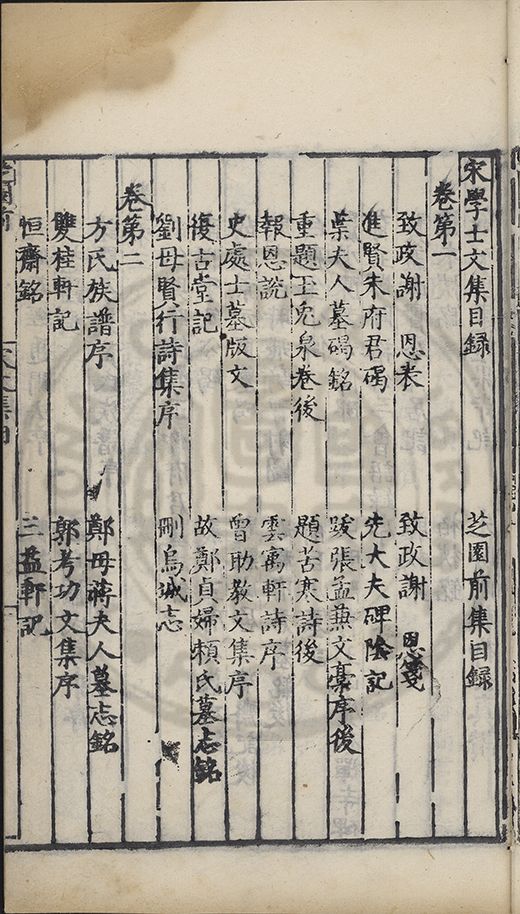 宋學士文集目錄　芝園前集目錄
卷第一
致政謝　恩表　致政謝　恩箋
進賢朱府君碣　先大夫碑陰記
葉夫人墓碣銘　跋張孟兼文稾序後
重題玉兔泉卷後　題苦寒詩後
報恩說　雲寓軒詩序
史處士墓版文　曾助教文集序
復古堂記　故鄭貞婦賴氏墓志銘
劉母賢行詩集序　刪烏城志
卷第二
方氏族譜序　鄭母蔣夫人墓志銘
雙桂軒記　郭考功文集序
恒齋銘　三益軒記